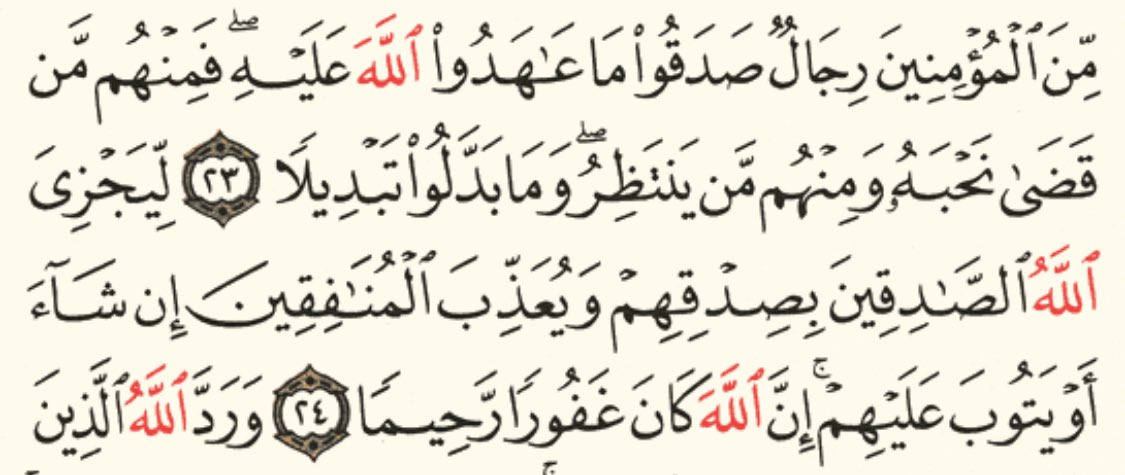 مِّنَ ٱلْمُؤْمِنِينَ رِجَالٌ صَدَقُوا۟ مَا عَـٰهَدُوا۟ ٱللَّهَ عَلَيْهِ ۖ فَمِنْهُم مَّن
قَضَىٰ نَحْبَهُۥ وَمِنْهُم مَّن يَنتَظِرُ ۖ وَمَا بَدَّلُوا۟ تَبْدِيلًا ٢٣ لِّيَجْزِىَ
ٱللَّهُ ٱلصَّـٰدِقِينَ بِصِدْقِهِمْ وَيُعَذِّبَ ٱلْمُنَـٰفِقِينَ إِن شَآءَ
أَوْ يَتُوبَ عَلَيْهِمْ ۚ إِنَّ ٱللَّهَ كَانَ غَفُورًا رَّحِيمًا ٢٤ وَرَدَّ ٱللَّهُ ٱلَّذِينَ